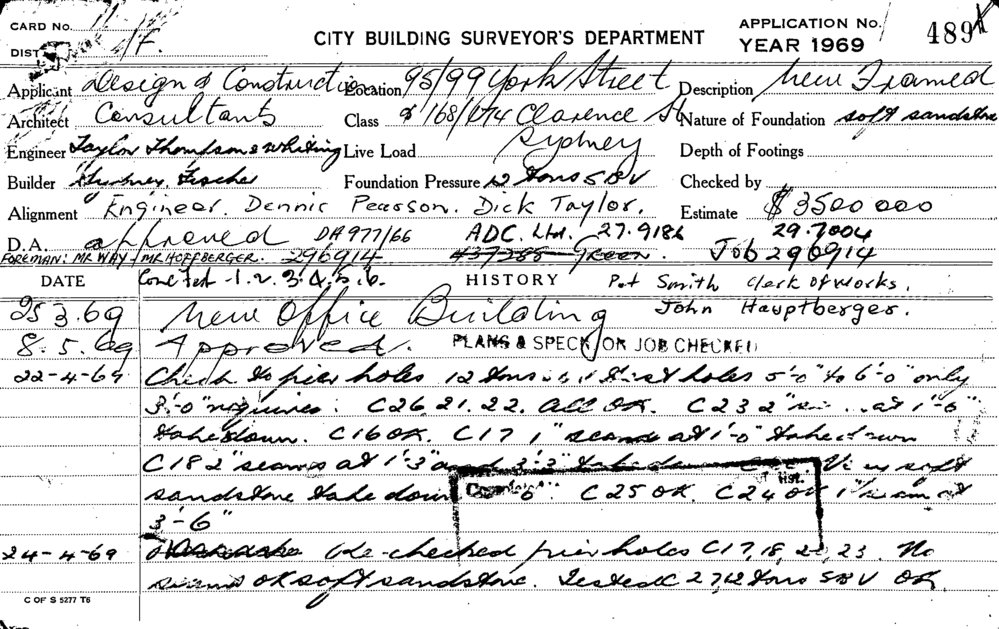 CARD No.
APPLICATION No. 489
DIST
CITY BUILDING SURVEYOR'S DEPARTMENT
YEAR 1969
Applicant Design & Construction Location 95/99 York Street Description New Framed
Architect Consultants Class & 168/174 Clarence St Nature of Foundation soft sandstone
Engineer Taylor Thompson & Whiting Live Load Sydney Depth of Footings
Builder Fischer Foundation Pressure 12 tons SBV Checked by
Alignment Engineer. Dennis Pearson. Dick Taylor. Estimate $3500000
D.A. approved DA 977/66 ADC. Ltd. 27.9186 29.7004
FOREMAN: MR WAY / MR HOFFBERGER. 296914 Job 296914
DATE 1. 2. 3. 4. 5. 6. HISTORY Pat Smith Clerk of Works.
John Hauptberger.
25 3.69 New Office Building
8.5.69 Approved. PLANS & SPECS FOR JOB CHECKED
22-4-69 Check to pier holes 12 tons test holes 5'-0" to 6'-0" only
3'-0" requires: C26, 21. 22. All OK. C23 2" at 1'-6"
take down. C16 OK. C17 1" seams at 1'-0" take down
C18 2" seams at 1'-3" and 3'-3" take down soft
sandstone take down 6" C25 OK. C24 OK 1" seam at
3'-6"
24-4-69 Re-checked pier holes C17, 18, 23. No
seams OK soft sandstone. Tested 12 tons SBV OK.
C OF S 5277 T6